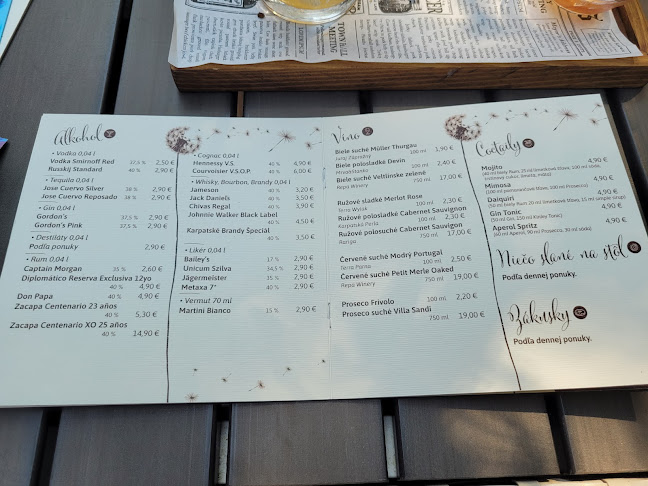 Alkohol
• Vodka 0,04 l
Vodka Smirnoff Red 37,5 % 2,50 €
Russkij Standard 40 % 2,90 €
• Tequila 0,04 l
Jose Cuervo Silver 38 % 2,90 €
Jose Cuervo Reposado 38 % 2,90 €
• Gin 0,04 l
Gordon's 37,5 % 2,90 €
Gordon's Pink 37,5 % 2,90 €
• Destiláty 0,04 l
Podľa ponuky 2,90 €
• Rum 0,04 l
Captain Morgan 35 % 2,60 €
Diplomático Reserva Exclusiva 12yo
40 % 4,90 €
Don Papa 40 % 4,90 €
Zacapa Centenario 23 años
40 % 5,30 €
Zacapa Centenario XO 25 años
40 % 14,90 €
• Cognac 0,04 l
Hennessy V.S. 40 % 4,90 €
Courvoisier V.S.O.P. 40 % 6,00 €
• Whisky, Bourbon, Brandy 0,04 l
Jameson 40 % 3,20 €
Jack Daniels 40 % 3,50 €
Chivas Regal 40 % 3,90 €
Johnnie Walker Black Label
40 % 4,50 €
Karpatské Brandy Špeciál
40 % 3,50 €
• Likér 0,04 l
Bailey's 17 % 2,90 €
Unicum Szilva 34,5 % 2,90 €
Jägermeister 35 % 2,90 €
Metaxa 7* 40 % 3,90 €
• Vermut 70 ml
Martini Bianco 15 % 2,90 €
Víno
Biele suché Müller Thurgau
Juraj Zápražný 100 ml 1,90 €
Biele polosladké Devín
100 ml 2,40 €
Biele suché Veltlínske zelené
Repa Winery 750 ml 17,00 €
Ružové sladké Merlot Rose
Terra Wylak 100 ml 2,30 €
Ružové polosladké Cabernet Sauvignon
Karpatská Perla 100 ml 2,30 €
Ružové polosuché Cabernet Sauvignon
750 ml 17,00 €
Červené suché Modrý Portugal
Terra Parna 100 ml 2,50 €
Červené suché Petit Merle Oaked
Repa Winery 750 ml 19,00 €
Proseco Frívolo 100 ml 2,20 €
Proseco suché Villa Sandi
750 ml 19,00 €
Coctaily
Mojito 4,90 €
Mimosa 4,90 €
Daiquiri 4,90 €
Gin Tonic 4,90 €
Aperol Spritz 4,90 €
(60 ml Aperol, 90 ml Proseco, 30 ml sóda)
Niečo slané na stôl
Podľa dennej ponuky.
Zákusky
Podľa dennej ponuky.